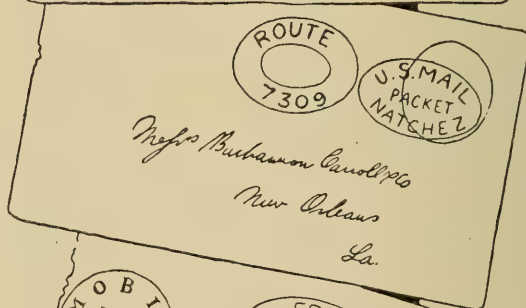 ROUTE
7309
U.S. MAIL
PACKET
NATCHEZ
Messrs Buchannon Carroll & Co
New Orleans
La.
MOBI